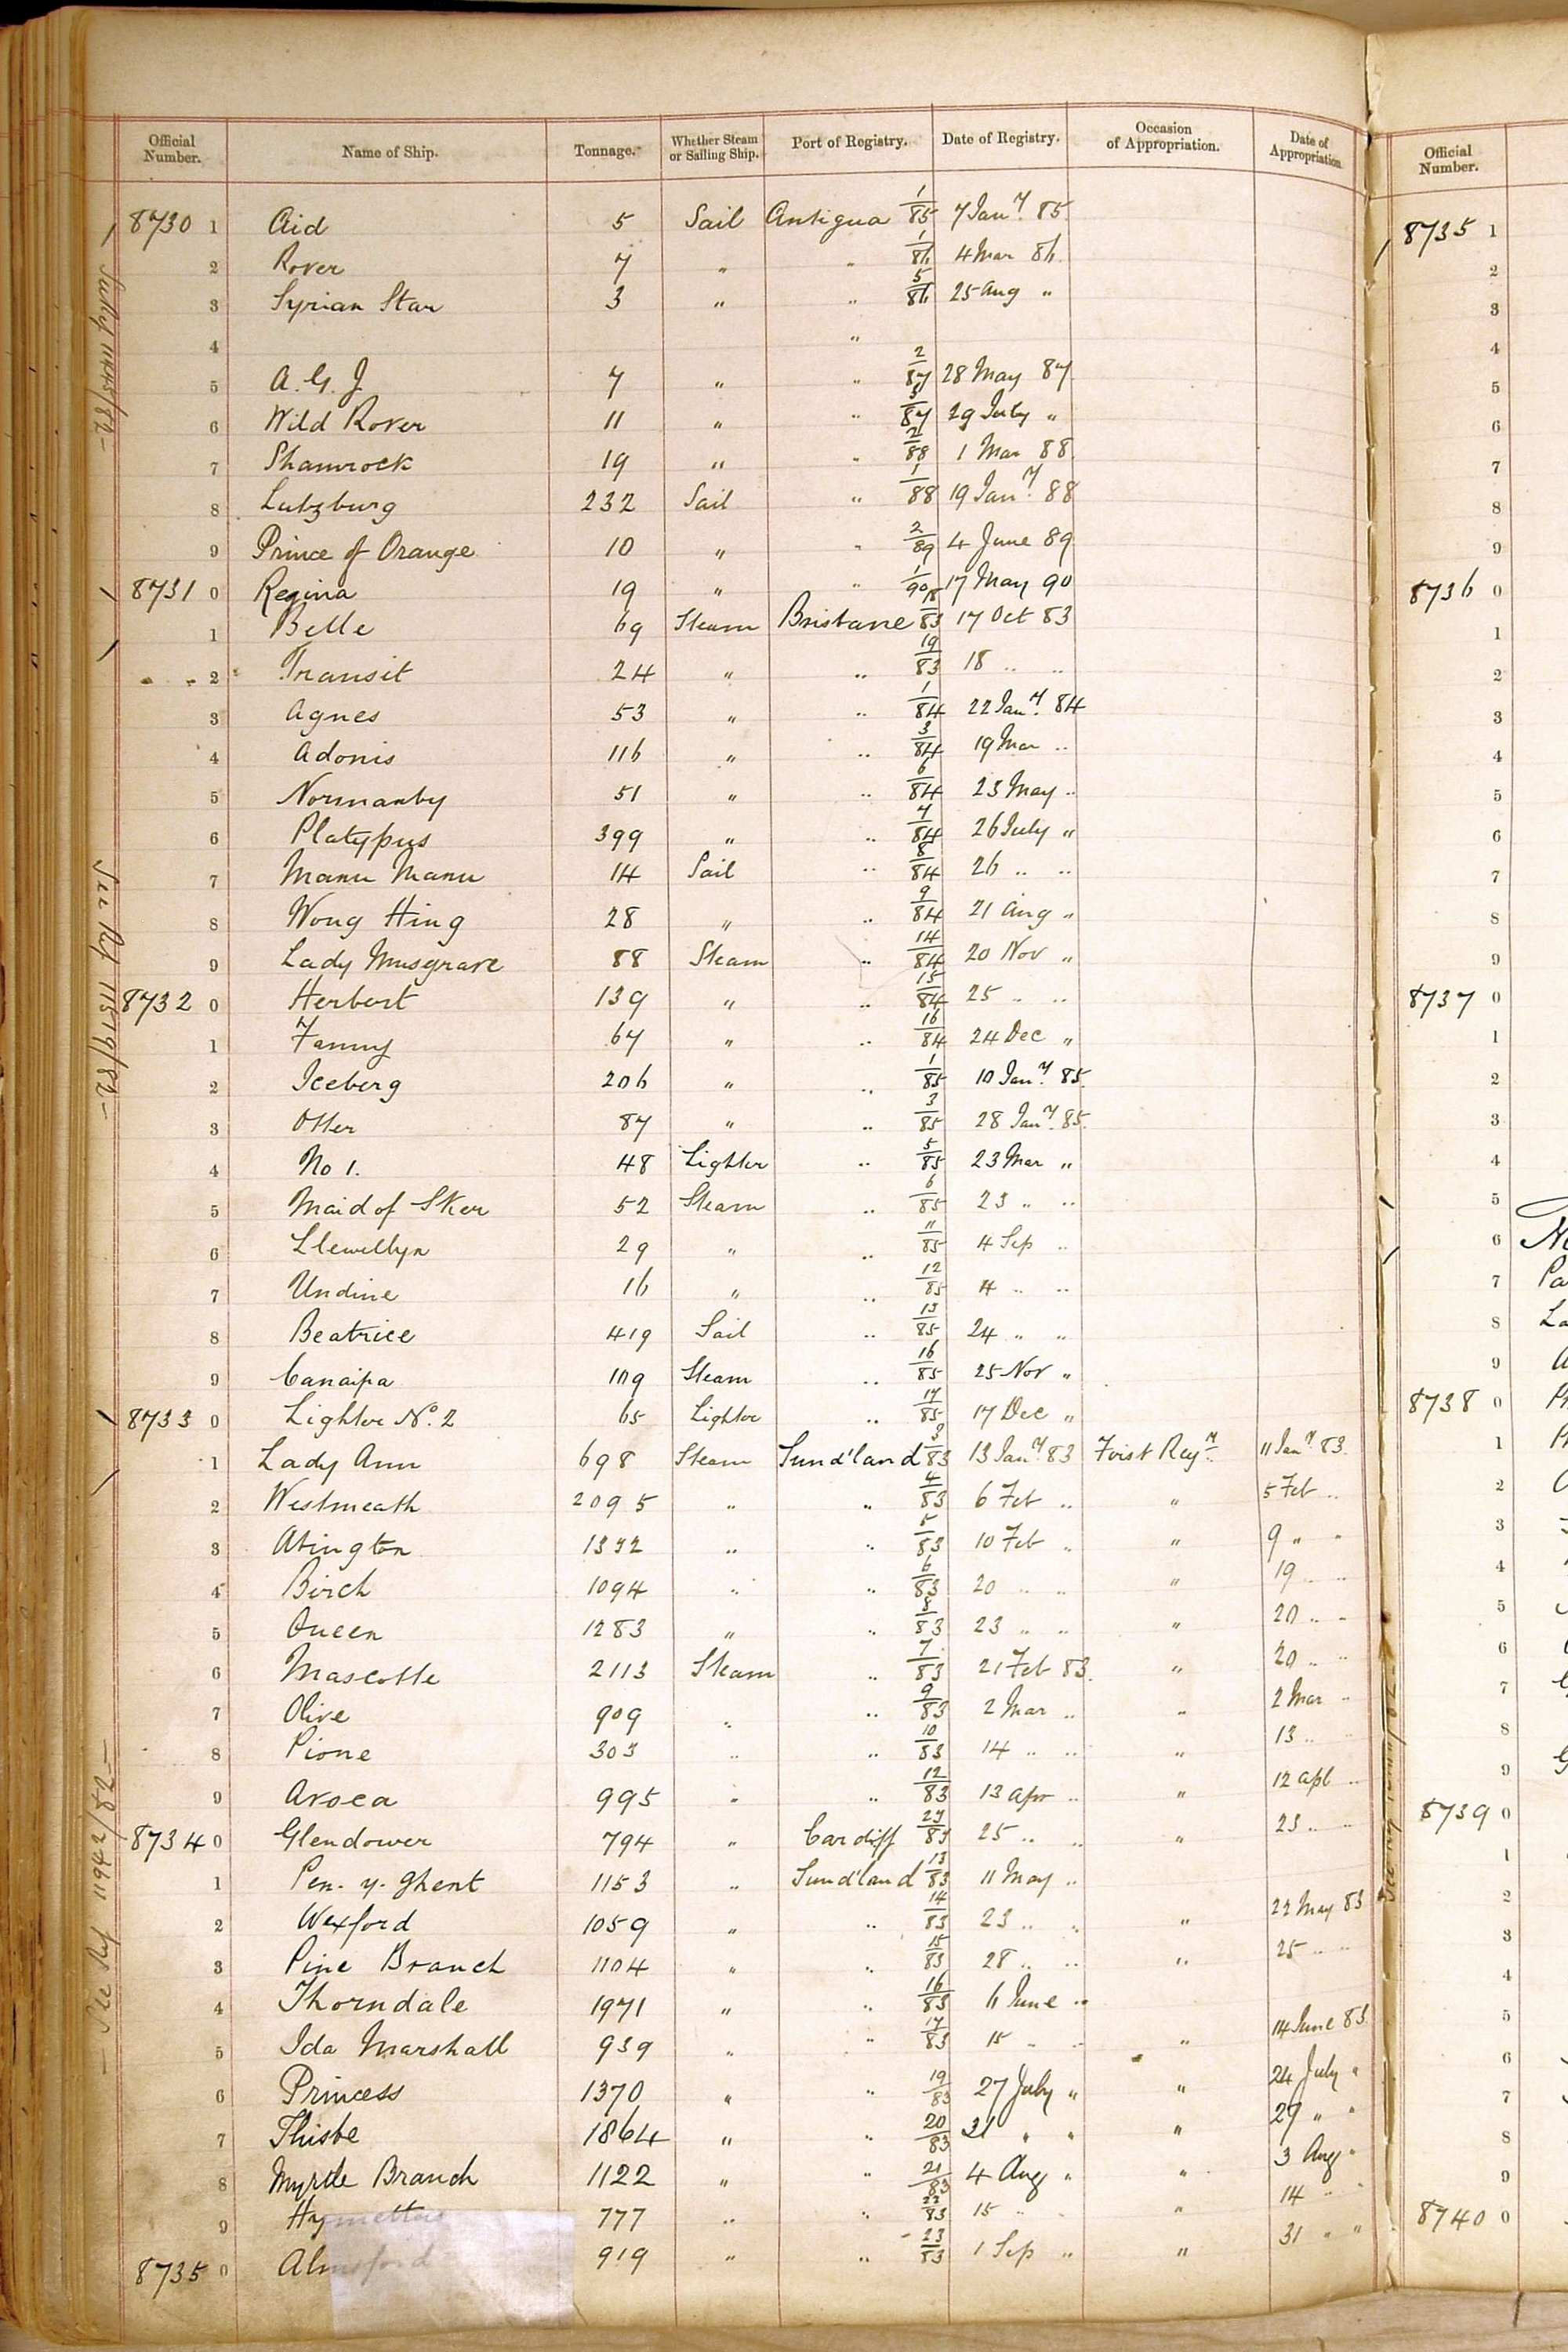 Official Number. Name of Ship. Tonnage. Whether Steam or Sailing Ship. Port of Registry. Date of Registry. Occasion of Appropriation. Date of Appropriation Official Number.
8730 1 Aid 5 Sail Antigua 1/85 7 Jany. 85
2 Rover 7 " " 1/86 4 Mar 86
3 Syrian Star 3 " " 5/86 25 Aug "
4 "
5 A. G. J 7 " " 2/87 28 May 87
6 Wild Rover 11 " " 3/87 29 July "
7 Shamrock 19 " " 2/88 1 Mar 88
8 Lutzburg 232 Sail " 1/88 19 Jany. 88
9 Prince of Orange 10 " " 2/89 4 June 89
8731 0 Regina 19 " " 1/90 17 May 90
1 Belle 69 Steam Brisbane 18/83 17 Oct 83
2 Transit 24 " " 19/83 18 " "
3 Agnes 53 " " 1/84 22 Jany. 84
4 Adonis 116 " " 3/84 19 Mar "
5 Normanby 51 " " 6/84 23 May "
6 Platypus 399 " " 7/84 26 July "
7 Manu Manu 14 Sail " 8/84 26 " "
8 Wong Hing 28 " " 9/84 21 Aug "
9 Lady Musgrave 88 Steam " 14/84 20 Nov "
8732 0 Herbert 139 " " 15/84 25 " "
1 Fanny 67 " " 16/84 24 Dec "
2 Iceberg 206 " " 1/85 10 Jany. 85
3 Otter 87 " " 3/85 28 Jany. 85
4 No 1. 48 Lighter " 5/85 23 Mar "
5 Maid of Sker 52 Steam " 6/85 23 " "
6 Llewellyn 29 " " 11/85 4 Sep "
7 Undine 16 " " 12/85 4 " "
8 Beatrice 419 Sail " 13/85 24 " "
9 Canaipa 109 Steam " 16/85 25 Nov "
8733 0 Lighter No. 2 65 Lighter " 17/85 17 Dec "
1 Lady Ann 698 Steam Sund'land 3/83 13 Jany. 83 First Regy. 11 Jany. 83
2 Westmeath 2095 " " 4/83 6 Feb " " 5 Feb "
3 Abington 1332 " " 5/83 10 Feb " " 9 " "
4 Birch 1094 " " 6/83 20 " " " 19 " "
5 Queen 1283 " " 8/83 23 " " " 20 " "
6 Mascotte 2113 Steam " 7/83 21 Feb 83 " 20 " "
7 Olive 909 " " 9/83 2 Mar " " 2 Mar "
8 Pione 303 " " 10/83 14 " " " 13 " "
9 Arosa 995 " " 12/83 13 Apr " " 12 Apl "
8734 0 Glendower 794 " Cardiff 27/83 25 " " " 23 " "
1 Pen-y-Ghent 1153 " Sund'land 13/83 11 May "
2 Wexford 1059 " " 14/83 23 " " " 22 May 83
3 Pine Branch 1104 " " 15/83 28 " " " 25 " "
4 Thorndale 1971 " " 16/83 6 June "
5 Ida Marshall 939 " " 17/83 15 " " " 14 June 83
6 Princess 1370 " " 19/83 27 July " " 24 July "
7 Thisbe 1864 " " 20/83 31 " " " 29 " "
8 Myrtle Branch 1122 " " 21/83 4 Aug " " 3 Aug "
9 Hymettus 777 " " 22/83 15 " " " 14 " "
8735 0 Almsford 919 " " 23/83 1 Sep " " 31 " "
8735 1
2
3
4
5
6
7
8
9
8736 0
1
2
3
4
5
6
7
8
9
8737 0
1
2
3
4
5
6
7
8
9
8738 0
1
2
3
4
5
6
7
8
9
8739 0
1
2
3
4
5
6
7
8
9
8740 0
See Ref 11519/82-
- See Ref 11942/82 -